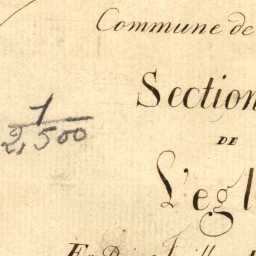 Commune de
1
2,500
Section
DE
L'egl